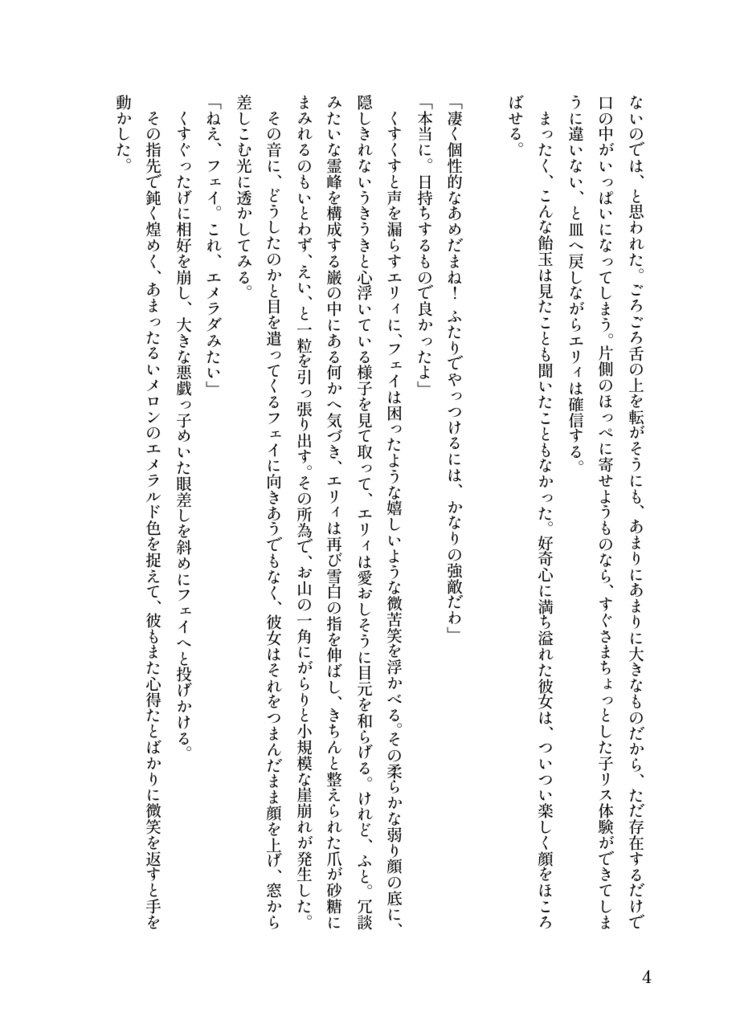 ないのでは、と思われた。ごろごろ舌の上を転がそうにも、あまりにあまりに大きなものだから、ただ存在するだけで
口の中がいっぱいになってしまう。片側のほっぺに寄せようものなら、すぐさまちょっとした子リス体験ができてしま
うに違いない、と皿へ戻しながらエリィは確信する。
まったく、こんな飴玉は見たことも聞いたこともなかった。好奇心に満ち溢れた彼女は、ついつい楽しく顔をほころ
ばせる。
「凄く個性的なあめだまね！ ふたりでやっつけるには、かなりの強敵だわ」
「本当に。日持ちするもので良かったよ」
くすくすと声を漏らすエリィに、フェイは困ったような嬉しいような微苦笑を浮かべる。その柔らかな弱り顔の底に、
隠しきれないうきうきと心浮いている様子を見て取って、エリィは愛おしそうに目元を和らげる。けれど、ふと。冗談
みたいな霊峰を構成する巌の中にある何かへ気づき、エリィは再び雪白の指を伸ばし、きちんと整えられた爪が砂糖に
まみれるのもいとわず、えい、と一粒を引っ張り出す。その所為で、お山の一角にがらりと小規模な崖崩れが発生した。
その音に、どうしたのかと目を遣ってくるフェイに向きあうでもなく、彼女はそれをつまんだまま顔を上げ、窓から
差しこむ光に透かしてみる。
「ねえ、フェイ。これ、エメラダみたい」
くすぐったげに相好を崩し、大きな悪戯っ子めいた眼差しを斜めにフェイへと投げかける。
その指先で鈍く煌めく、あまったるいメロンのエメラルド色を捉えて、彼もまた心得たとばかりに微笑を返すと手を
動かした。
4